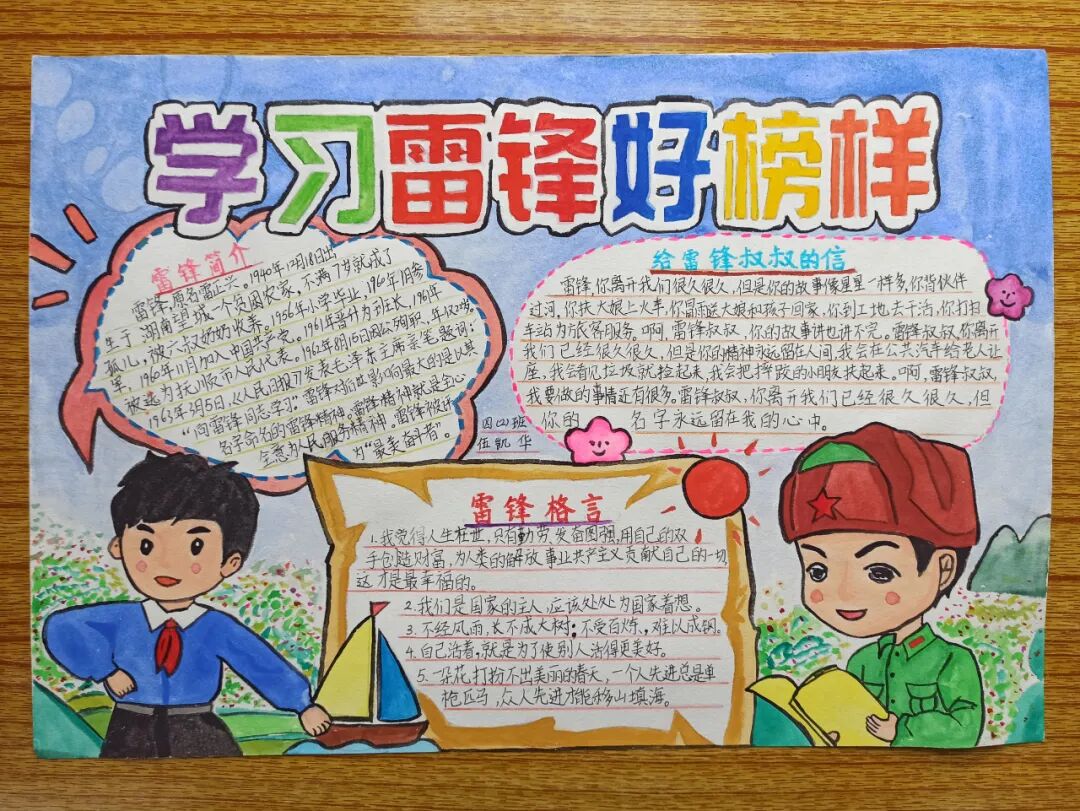 学习雷锋好榜样
雷锋简介
雷锋,原名雷正兴。1940年12月18日出
生于湖南望城一个贫困农家,不满7岁就成了
孤儿,被六叔奶奶收养。1956年小学毕业,1960年1月参
军,1960年11月加入中国共产党。1961年晋升为班长,1961年
被选为抚顺市人民代表。1962年8月15日因公殉职,年仅22岁。
1963年3月5日,《人民日报》发表毛泽东主席亲笔题词:
“向雷锋同志学习”雷锋对后世影响最大的是以其
名字命名的雷锋精神。雷锋精神就是全心
全意为人民服务精神。雷锋被评
为“最美奋斗者”。
给雷锋叔叔的信
雷锋,你离开我们很久很久,但是你的故事像星星一样多,你背伙伴
过河,你扶大娘上火车,你冒雨送大娘和孩子回家,你到工地去干活,你打扫
车站为旅客服务。啊,雷锋叔叔,你的故事讲也讲不完。雷锋叔叔,你离开
我们已经很久很久,但是你的精神永远留在人间,我会在公共汽车给老人让
座,我会看见垃圾就捡起来,我会把摔跤的小朋友扶起来。啊,雷锋叔叔,
我要做的事情还有很多。雷锋叔叔,你离开我们已经很久很久,但
你的 名字永远留在我的心中。
四(2)班
伍凯华
雷锋格言
1.我觉得人生在世,只有勤劳,发奋图强,用自己的双
手创造财富,为人类的解放事业共产主义贡献自己的一切,
这才是最幸福的。
2.我们是国家的主人,应该处处为国家着想。
3.不经风雨,长不成大树;不受百炼,难以成钢。
4.自己活着,就是为了使别人活得更美好。
5.一朵花打扮不出美丽的春天,一个人先进总是单
枪匹马,众人先进才能移山填海。